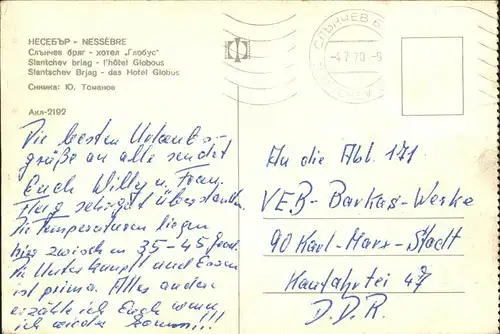 НЕСЕБЪР - NESSÈBRE
Слънчев бряг - хотел „Глобус"
Slantchev briag - l'hôtel Globous
Slantschev Brjag - das Hotel Globus
Снимка: Ю. Томанов
Акл-2192
СЛЪНЧЕВ Б
-4.7.70.-9
Die besten Urlaubs-
grüße an alle sendet
Euch Willy u. Frau.
Flug sehr gut überstanden.
Die Temperaturen liegen
hier zwischen 35-45 Grad.
Die Unterkunft und Essen
ist prima. Alles andere
erzähle ich Euch wenn
ich wieder komm!!!
An die Abt. 171
VEB-Barkas-Werke
90 Karl-Marx-Stadt
Kauffahrtei 47
D.D.R.